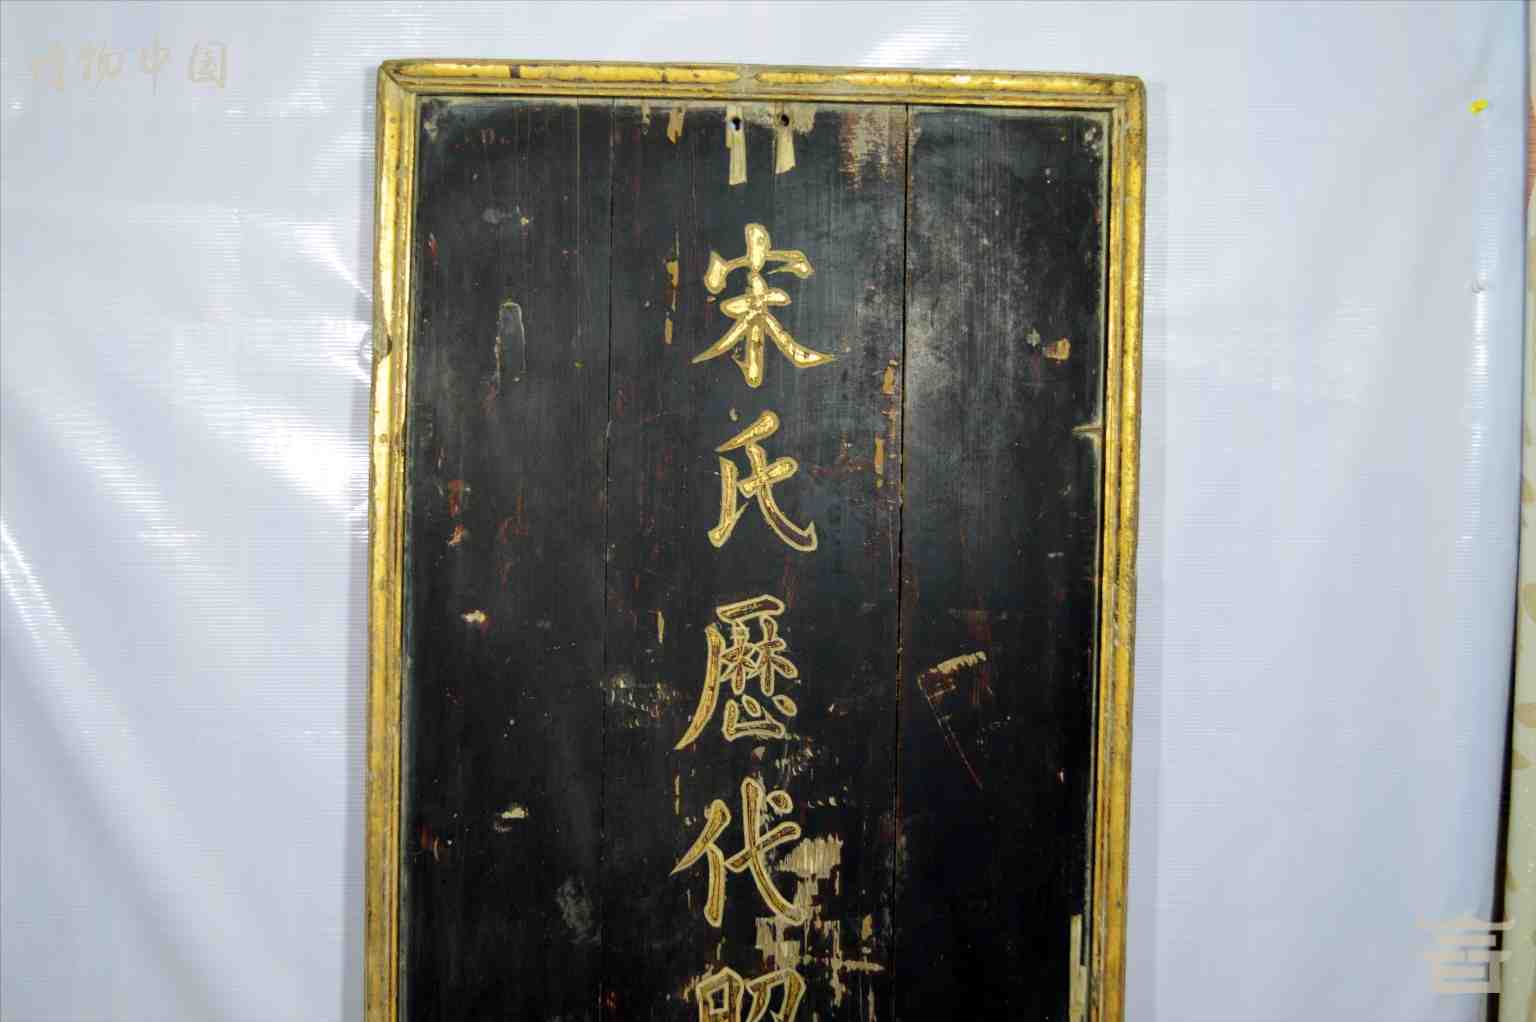 博物中国
宋氏歷代昭